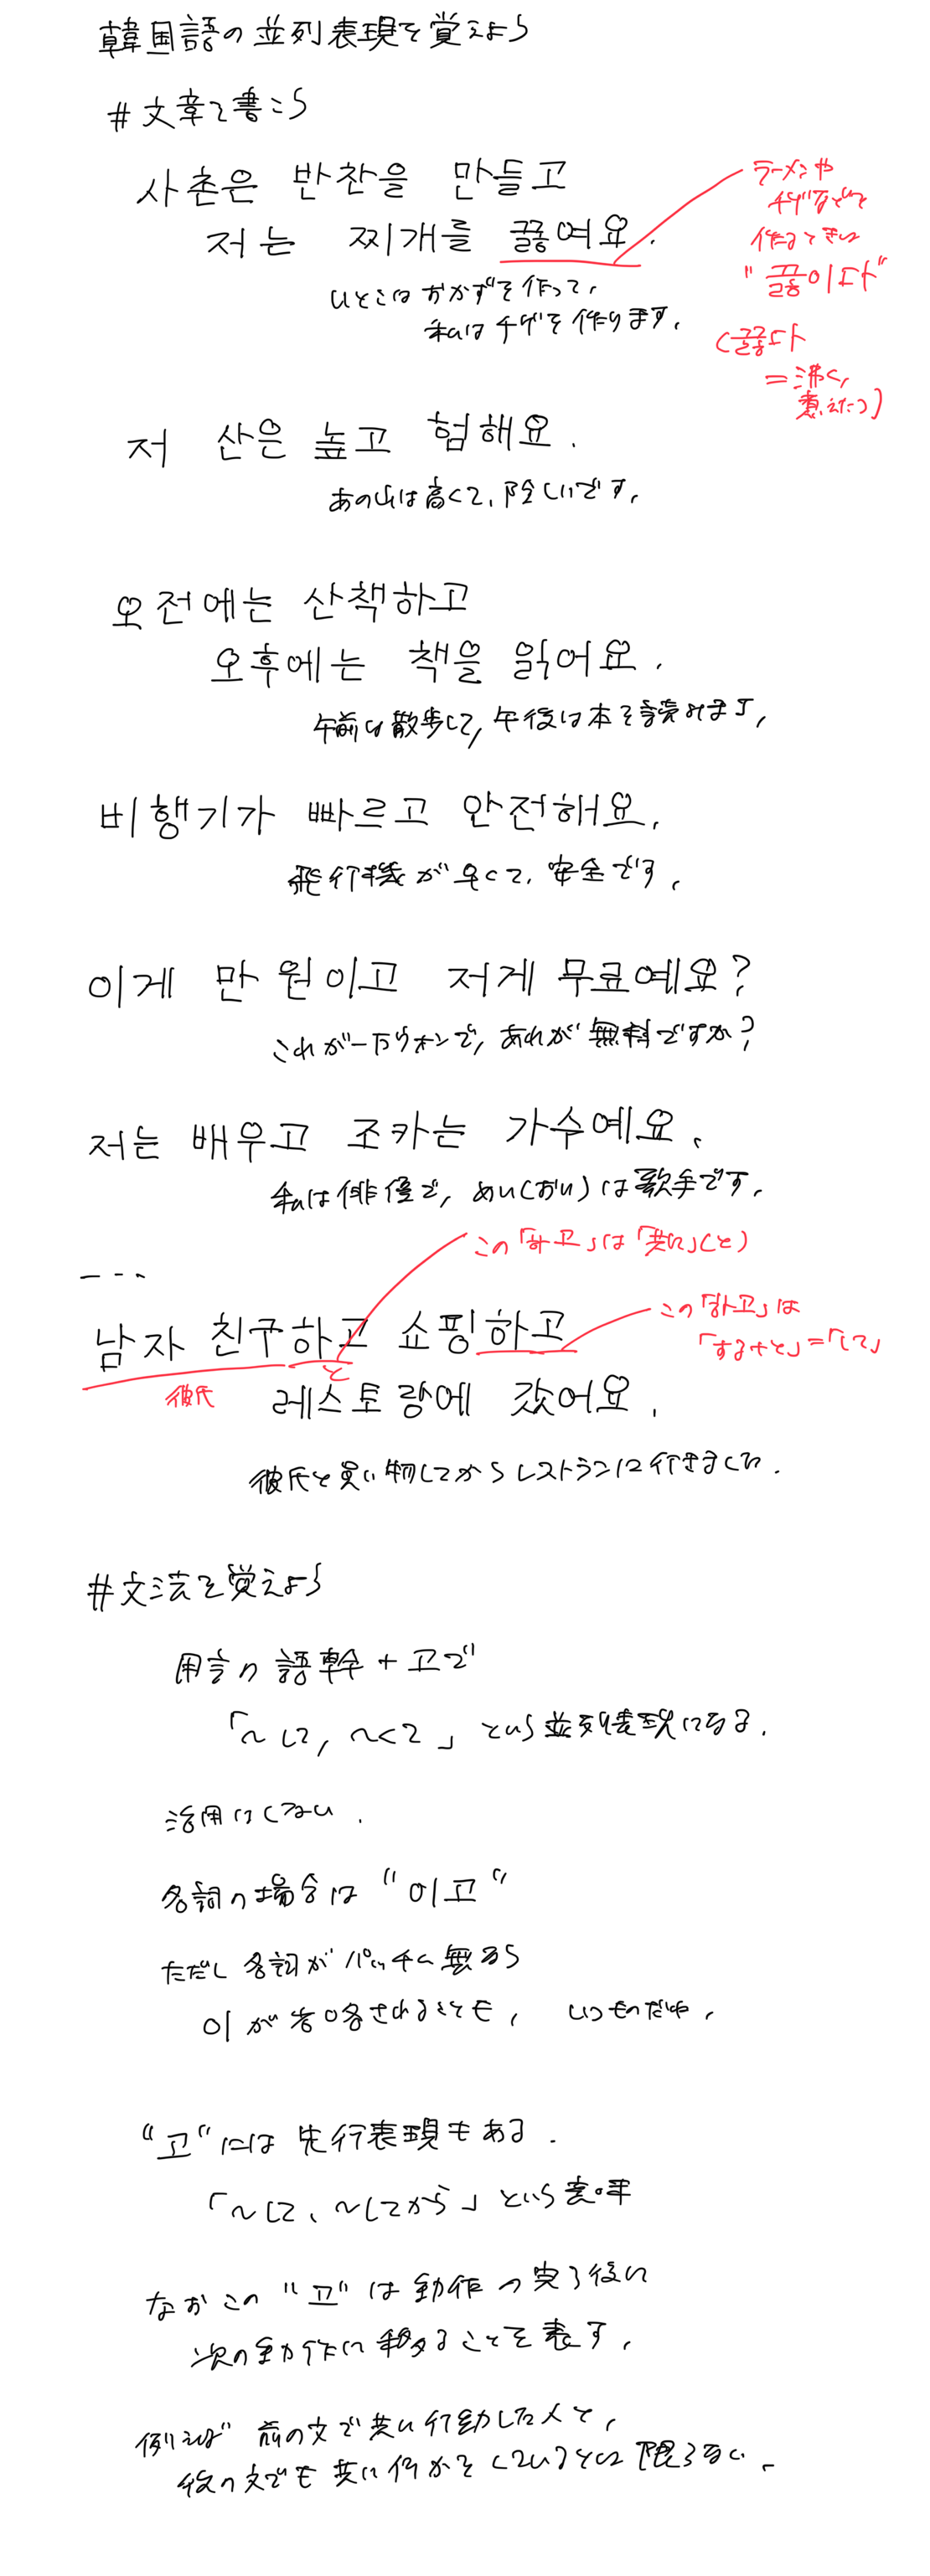 韓国語の並列表現を覚えよう
#文章を書こう
사촌은 반찬을 만들고
저는 찌개를 끓여요.
いとこはおかずを作って、
私はチゲを作ります。
ラーメンや
チゲなどを
作るときは
"끓이다"
(끓다
=沸く,
煮えたつ)
저 산은 높고 험해요.
あの山は高くて、険しいです。
오전에는 산책하고
오후에는 책을 읽어요.
午前は散歩して, 午後は本を読みます,
비행기가 빠르고 안전해요.
飛行機が早くて、安全です。
이게 만 원이고 저게 무료예요?
これが一万ウォンで, あれが無料ですか?
저는 배우고 조카는 가수예요.
私は俳優で, めい(おい)は歌手です。
この「하고」は「共に」(と)
----
この「하고」は
「する+と」=「して」
남자 친구하고 쇼핑하고
と
彼氏
레스토랑에 갔어요.
彼氏と買い物してからレストランに行きました.
#文法を覚えよう
用言の語幹+고で
「〜して, 〜くて」という並列表現になる.
活用はしない.
名詞の場合は"이고"
ただし名詞がパッチム無なら
이が省略されることも, いつものだね,
"고"には先行表現もある.
「〜して、〜してから」という意味
なおこの"고"は動作の完了後に
次の動作に移ることを表す,
例えば前の文で共に行動した人と,
後の文でも共に何かをしているとは限らない、